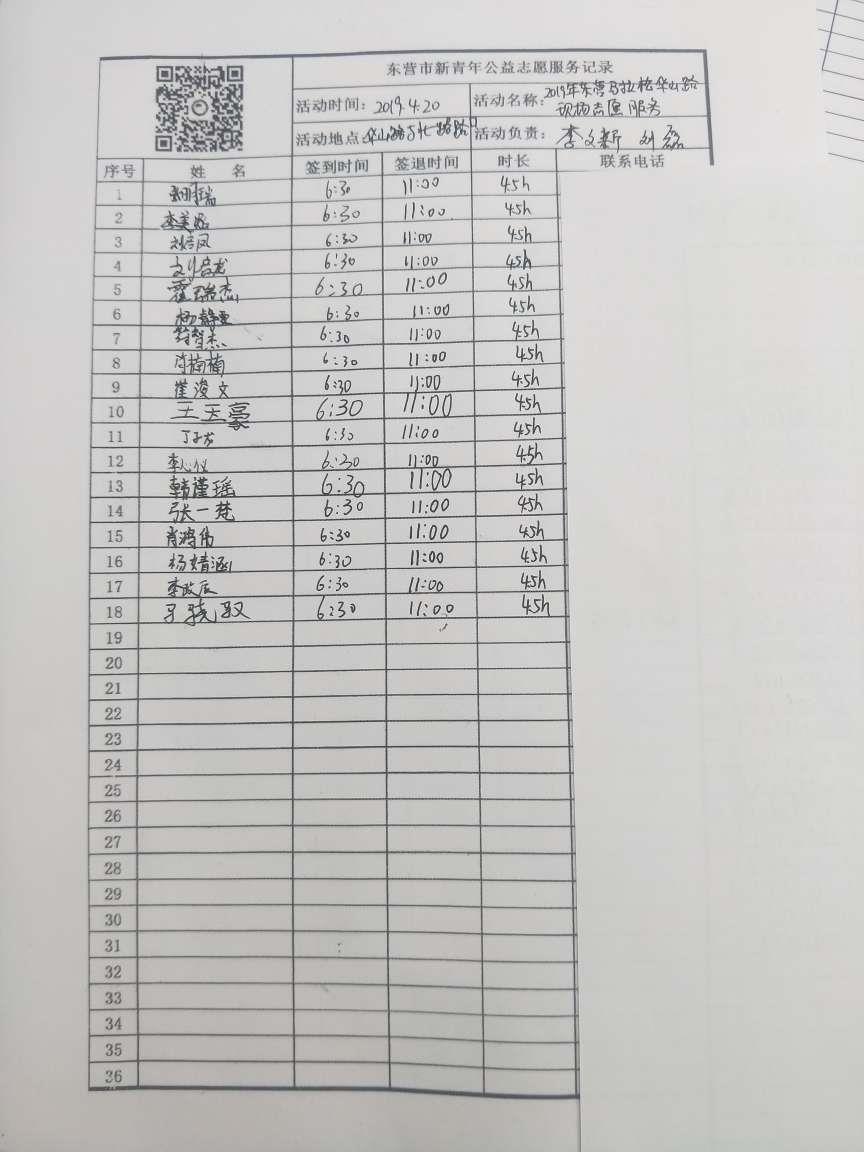 东营市新青年公益志愿服务记录
活动时间：2019.4.20 活动名称：2019年东营马拉松华山路
现场志愿服务
活动地点：华山路 路口 活动负责：李文新 刘磊
序号 姓 名 签到时间 签退时间 时长 联系电话
1 6:30 11:00 4.5h
2 李美 6:30 11:00 4.5h
3 6:30 11:00 4.5h
4 6:30 11:00 4.5h
5 霍瑞杰 6:30 11:00 4.5h
6 杨静 6:30 11:00 4.5h
7 6:30 11:00 4.5h
8 楠楠 6:30 11:00 4.5h
9 崔浚文 6:30 11:00 4.5h
10 王玉豪 6:30 11:00 4.5h
11 6:30 11:00 4.5h
12 李心仪 6:30 11:00 4.5h
13 韩瑾瑶 6:30 11:00 4.5h
14 张一梵 6:30 11:00 4.5h
15 肖鸿伟 6:30 11:00 4.5h
16 杨婧涵 6:30 11:00 4.5h
17 李政辰 6:30 11:00 4.5h
18 骁驭 6:30 11:00 4.5h
19
20
21
22
23
24
25
26
27
28
29
30
31
32
33
34
35
36